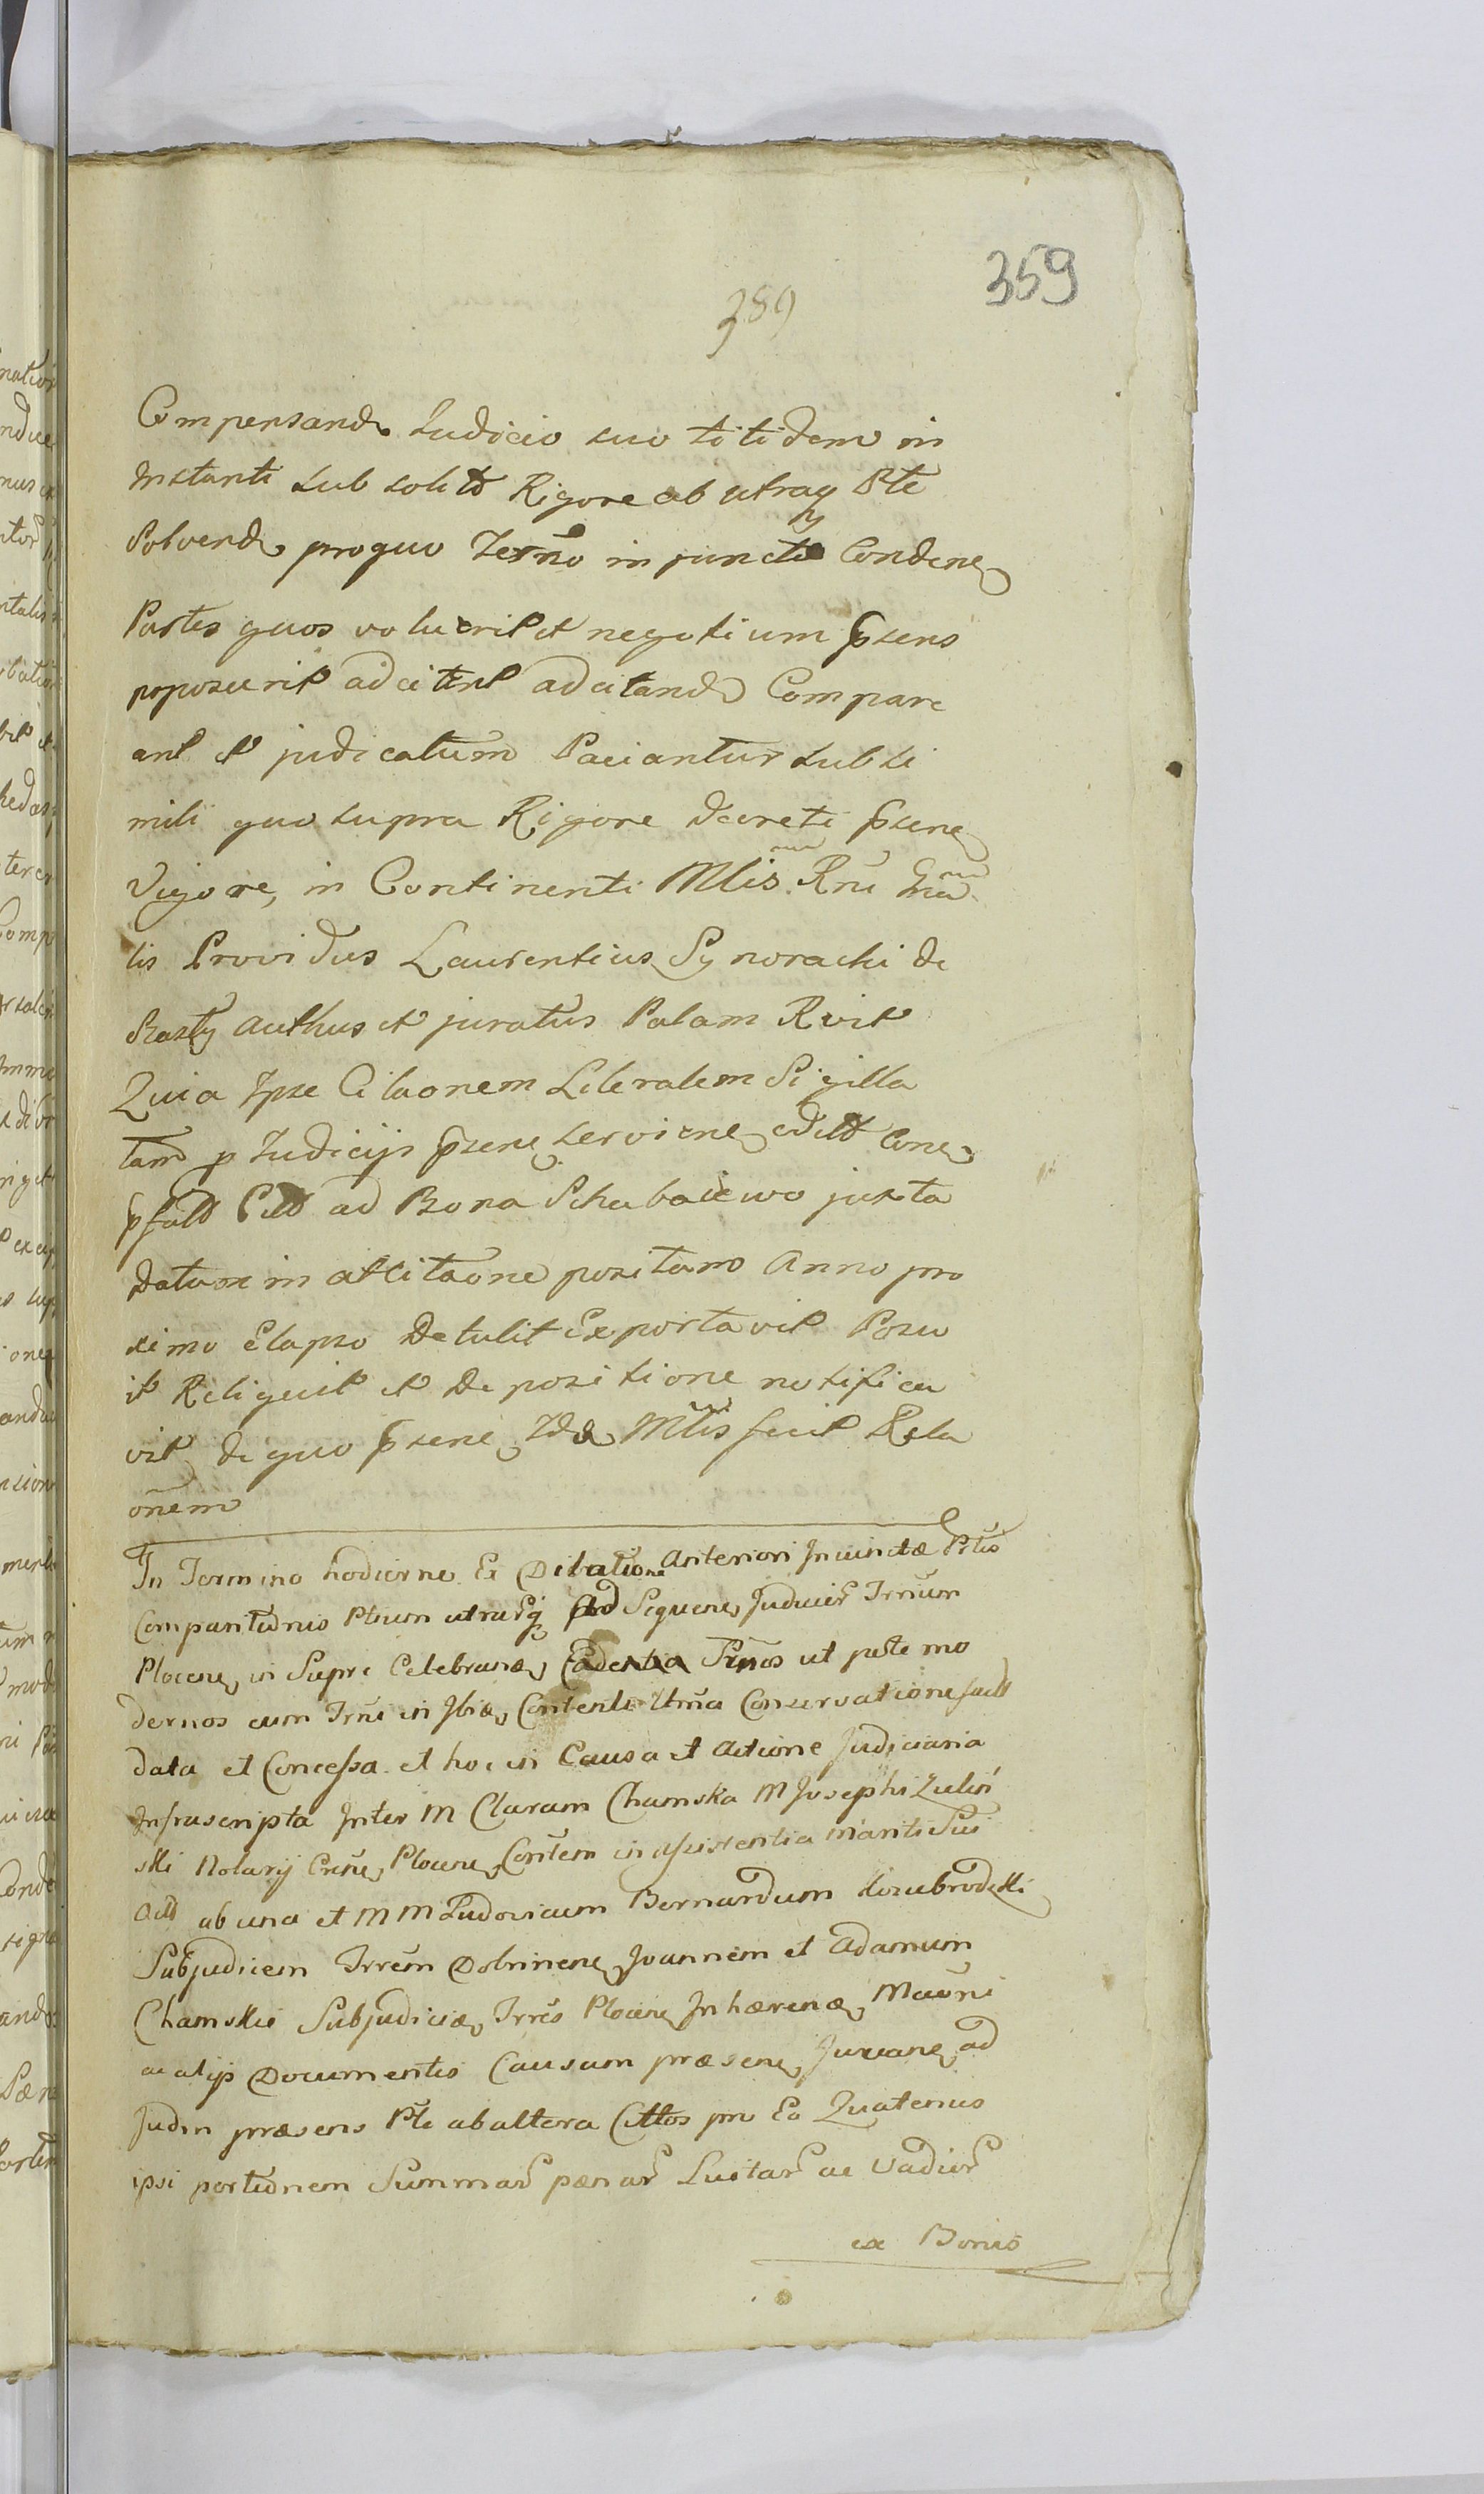 359
389
Compensand Judicio suo titidem in
Instanti sub solito Rigore ab utraq Pte
Solvend pro quo Termo in puncto Conden
Partes quos voluerit et negotium psens
poposcerit adcitent adcitand Compare
ant et judicatum Paciantur sub si
mili quo supra Rigore decreti psen
Vigore, in Continenti Mlis Rni
lis Providus Laurentius Synoracki de
authus et juratus Palam Rvit
Quia Ipse Citaonem Literalem Sigilla
tam p Judicijs psen servien edit
ad Bona juxta
Datam in at Citaone positam Anno pro
ximo Elapso Detulit Exportavit Posu
it Reliquit et De positione notifica
vit de quo psen Idd Mlis fecit Rela
onem
In Termino hodierno Ex Dilatione Anteriori Injunctæ Prtis
Comparitionis Ptium utrarq Ad Sequen Judicior Trrum
Plocen in Sierpc Celebran Cadentia Trnos ut puste mo
dernos cum Trni in Conten Conservatione fact
data et Concessa et hoc in Causa et Actione Judiciaria
Infrascripta Inter M Claram Chamska M Josephi Zuliń
ski Notarij Plocen Contem in assistentia mariti Sui
Act ab una et M M Ludovicum Bernardum
Subjudicem Trrem Dobrinen Joannem et Adamum
Chamskie Subjudic Trris Plocen In hæren
ac alijs Documentis Causam præsen Juvan ad
Judm præsens Pte ab altera Cittos pro Eo Quatenus
ipsi portionem Summar pænar Luitar ac Vadior
ex Bonis